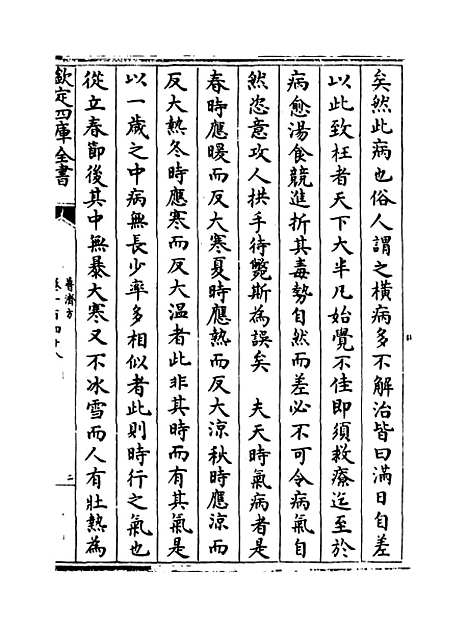 矣然此病也俗人謂之横病多不解治皆曰滿日自差
以此致枉者天下大半凡始覺不佳即須救療迄至於
病愈湯食競進折其毒勢自然而差必不可令病氣自
然恣意攻人拱手待斃斯為誤矣　夫天時氣病者是
春時應暖而反大寒夏時應熱而反大涼秋時應涼而
反大熱冬時應寒而反大温者此非其時而有其氣是
以一歲之中病無長少率多相似者此則時行之氣也
從立春節後其中無暴大寒又不冰雪而人有壯熱為
欽定四庫全書
普濟方
卷一百四十八
二